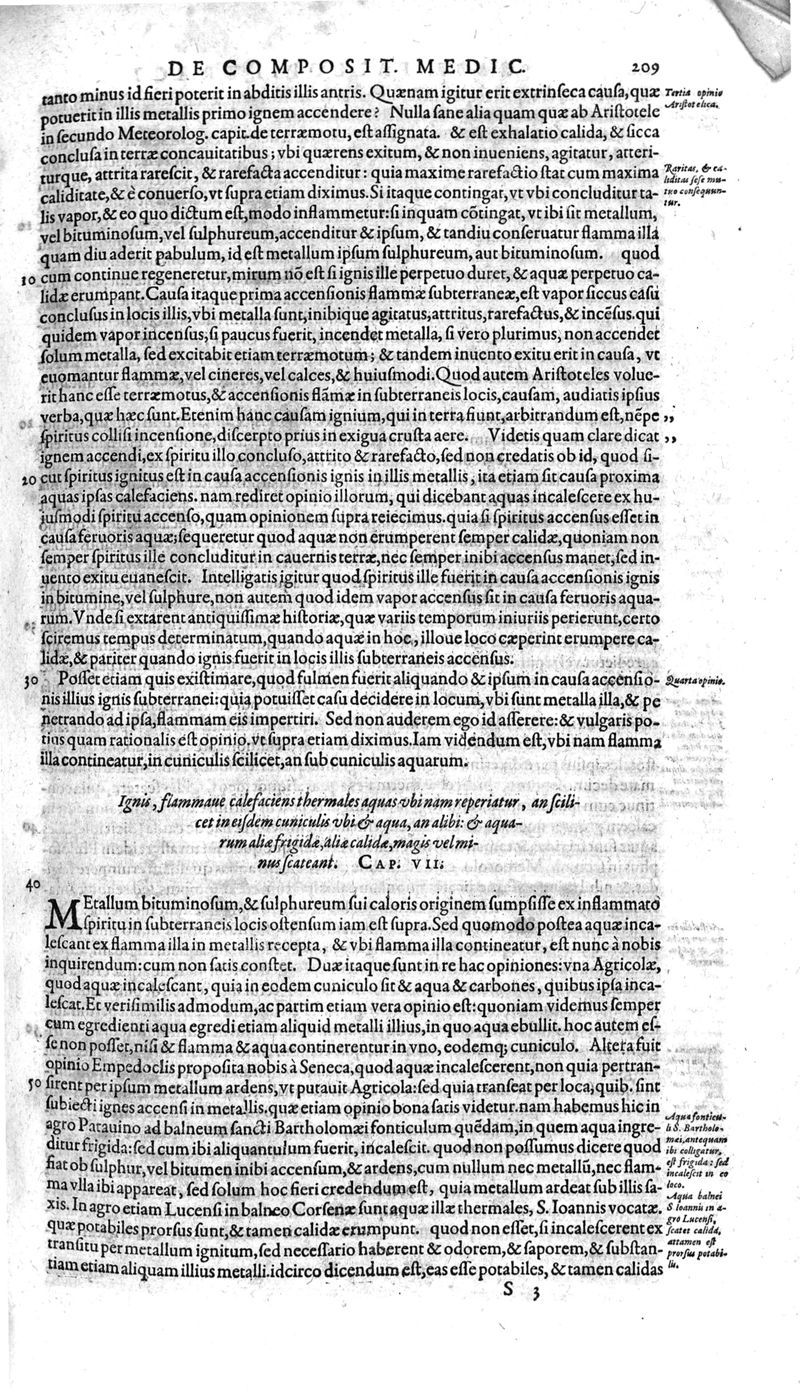 DE COMPOSIT. MEDIC. 209
tanto minus id fieri poterit in abditis illis antris. Quænam igitur erit extrinseca causa, quæ
potuerit in illis metallis primo ignem accendere? Nulla sane alia quam quæ ab Aristotele
in secundo Meteorolog. capit. de terræmotu, est assignata. & est exhalatio calida, & sicca
conclusa in terræ concauitatibus; vbi quærens exitum, & non inueniens, agitatur, atteri-
turque, attrita rarescit, & rarefacta accenditur: quia maxime rarefactio stat cum maxima
caliditate, & è conuerso, vt supra etiam diximus. Si itaque contingat, vt vbi concluditur ta-
lis vapor, & eo quo dictum est, modo inflammetur: si inquam cōtingat, vt ibi sit metallum,
vel bituminosum, vel sulphureum, accenditur & ipsum, & tandiu conseruatur flamma illa
quam diu aderit pabulum, id est metallum ipsum sulphureum, aut bituminosum. quod
10 cum continue regeneretur, mirum nō est si ignis ille perpetuo duret, & aquæ perpetuo ca-
lidæ erumpant. Causa itaque prima accensionis flammæ subterraneæ, est vapor siccus casu
conclusus in locis illis, vbi metalla sunt, inibique agitatus, attritus, rarefactus, & incēsus. qui
quidem vapor incensus, si paucus fuerit, incendet metalla, si vero plurimus, non accendet
solum metalla, sed excitabit etiam terræmotum; & tandem inuento exitu erit in causa, vt
euomantur flammæ, vel cineres, vel calces, & huiusmodi. Quod autem Aristoteles volue-
rit hanc esse terræmotus, & accensionis flāmæ in subterraneis locis, causam, audiatis ipsius
verba, quæ hæc sunt. Etenim hanc causam ignium, qui in terra fiunt, arbitrandum est, nēpe ,,
spiritus collisi incensione, discerpto prius in exigua crusta aere. Videtis quam clare dicat ,,
ignem accendi, ex spiritu illo concluso, attrito & rarefacto, sed non credatis ob id, quod si-
20 cut spiritus ignitus est in causa accensionis ignis in illis metallis, ita etiam sit causa proxima
aquas ipsas calefaciens. nam rediret opinio illorum, qui dicebant aquas incalescere ex hu-
iusmodi spiritu accenso, quam opinionem supra reiecimus. quia si spiritus accensus esset in
causa feruoris aquæ; sequeretur quod aquæ non erumperent semper calidæ, quoniam non
semper spiritus ille concluditur in cauernis terræ, nec semper inibi accensus manet, sed in-
uento exitu euanescit. Intelligatis igitur quod spiritus ille fuerit in causa accensionis ignis
in bitumine, vel sulphure, non autem quod idem vapor accensus sit in causa feruoris aqua-
rum. Vnde si extarent antiquissimæ historiæ, quæ variis temporum iniuriis perierunt, certo
sciremus tempus determinatum, quando aquæ in hoc, illoue loco cæperint erumpere ca-
lidæ, & pariter quando ignis fuerit in locis illis subterraneis accensus.
30 Posset etiam quis existimare, quod fulmen fuerit aliquando & ipsum in causa accensio-
nis illius ignis subterranei: quia potuisset casu decidere in locum, vbi sunt metalla illa, & pe
netrando ad ipsa, flammam eis impertiri. Sed non auderem ego id asserere: & vulgaris po-
tius quam rationalis est opinio. vt supra etiam diximus. Iam videndum est, vbi nam flamma
illa contineatur, in cuniculis scilicet, an sub cuniculis aquarum.
Ignis, flammaue calefaciens thermales aquas vbi nam reperiatur, an scili-
cet in eisdem cuniculis vbi & aqua, an alibi: & aqua-
rum aliæ frigidæ, aliæ calidæ, magis vel mi-
nus scateant. CAP. VII.
40
METallum bituminosum, & sulphureum sui caloris originem sumpsisse ex inflammato
spiritu in subterraneis locis ostensum iam est supra. Sed quomodo postea aquæ inca-
lescant ex flamma illa in metallis recepta, & vbi flamma illa contineatur, est nunc à nobis
inquirendum: cum non satis constet. Duæ itaque sunt in re hac opiniones: vna Agricolæ,
quod aquæ incalescant, quia in eodem cuniculo sit & aqua & carbones, quibus ipsa inca-
lescat. Et verisimilis admodum, ac partim etiam vera opinio est: quoniam videmus semper
cum egredienti aqua egredi etiam aliquid metalli illius, in quo aqua ebullit. hoc autem es-
se non posset, nisi & flamma & aqua continerentur in vno, eodemq; cuniculo. Altera fuit
opinio Empedoclis proposita nobis à Seneca, quod aquæ incalescerent, non quia pertran-
50 sirent per ipsum metallum ardens, vt putauit Agricola: sed quia transeat per loca, quib. sint
subiecti ignes accensi in metallis. quæ etiam opinio bona satis videtur. nam habemus hic in
agro Patauino ad balneum sancti Bartholomæi fonticulum quēdam, in quem aqua ingre-
ditur frigida: sed cum ibi aliquantulum fuerit, incalescit. quod non possumus dicere quod
fiat ob sulphur, vel bitumen inibi accensum, & ardens, cum nullum nec metallū, nec flam-
ma vlla ibi appareat, sed solum hoc fieri credendum est, quia metallum ardeat sub illis sa-
xis. In agro etiam Lucensi in balneo Corsenæ sunt aquæ illæ thermales, S. Ioannis vocatæ.
quæ potabiles prorsus sunt, & tamen calidæ erumpunt. quod non esset, si incalescerent ex
transitu per metallum ignitum, sed necessario haberent & odorem, & saporem, & substan-
tiam etiam aliquam illius metalli. idcirco dicendum est, eas esse potabiles, & tamen calidas
S 3
Tertia opinio
Aristotelica.
Raritas, & ca-
liditas sese mu-
tuo consequun-
tur.
Quarta opinio.
Aqua fonticu-
li S. Bartholo-
mæi, antequam
ibi colligatur,
est frigida: sed
incalescit in eo
loco.
Aqua balnei
S Ioannis in a-
gro Lucensi,
scatet calida,
attamen est
prorsus potabi-
lis.